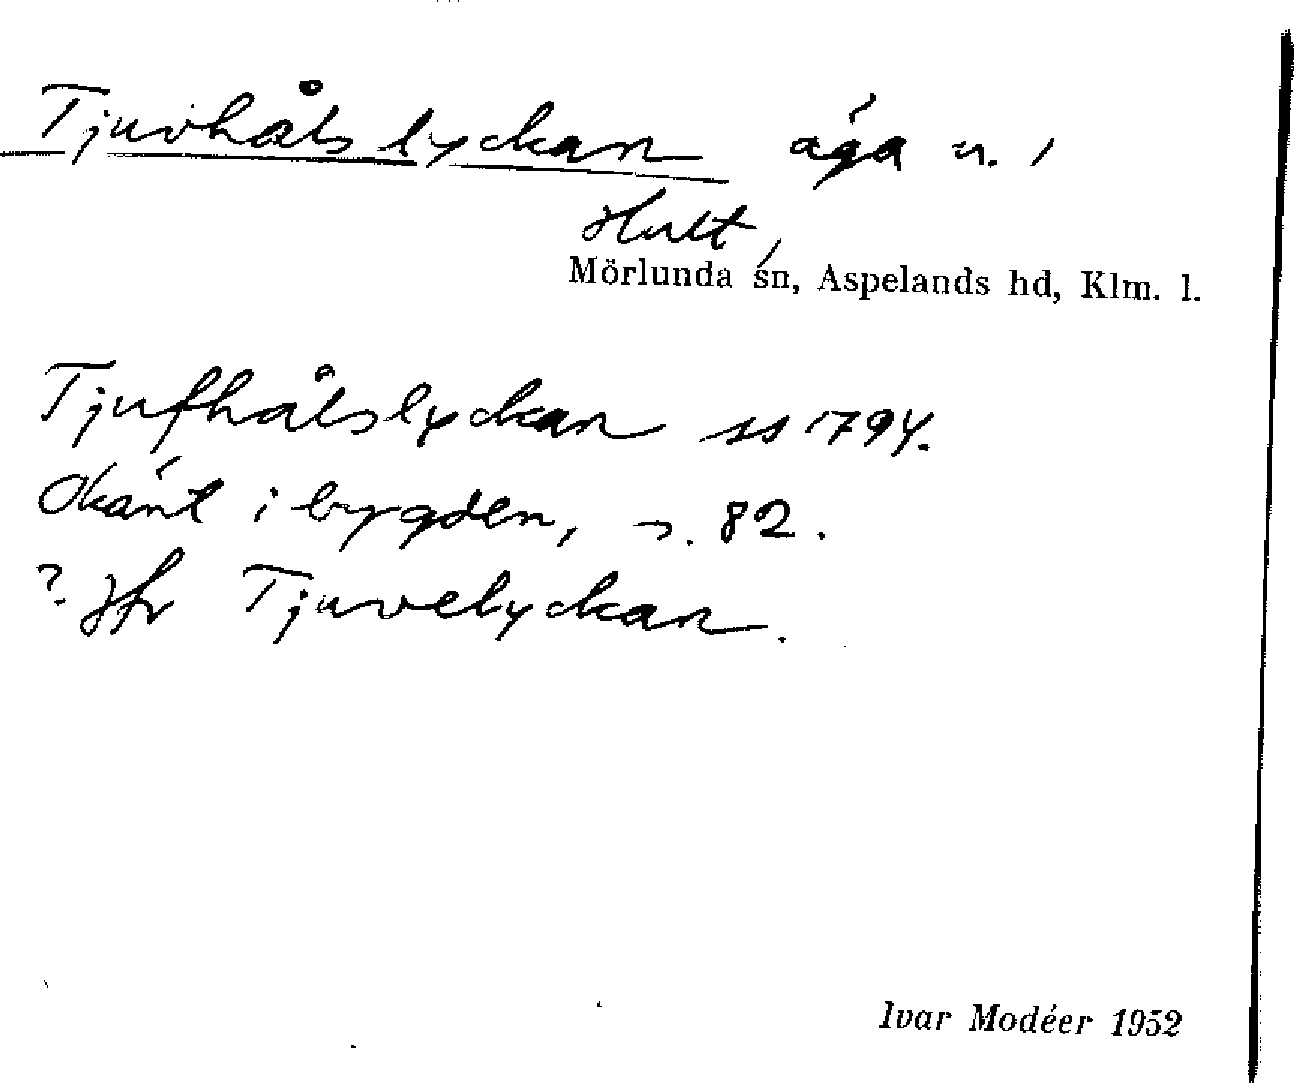 Tjuvhålslyckan äga u. /
Hult,
Mörlunda sn, Aspelands hd, Klm. l.
Tjufhålslyckan ss 1794.
Okänt i bygden, s. 82.
?. Jfr Tjuvelyckan.
Ivar Modéer 1952